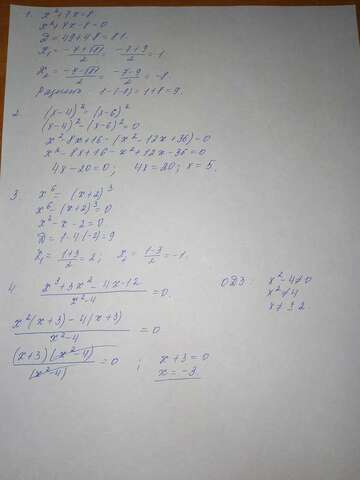 1. x²+7x=8
x²+7x-8=0
D=49+4·8=81.
x₁=(-7+√81)/2=(-7+9)/2=1
x₂=(-7-√81)/2=(-7-9)/2=-8.
1-(-8)=1+8=9.
2. (x-4)²=(x-6)²
(x-4)²-(x-6)²=0
x²-8x+16-(x²-12x+36)=0
x²-8x+16-x²+12x-36=0
4x-20=0; 4x=20; x=5.
3. x⁶=(x+2)³
x⁶-(x+2)³=0
x²-x-2=0.
D=1-4·(-2)=9
x₁=(1+3)/2=2; x₂=(1-3)/2=-1.
4. (x³+3x²-4x-12)/(x²-4)=0. ОДЗ: x²-4≠0
x²≠4
x≠±2.
(x²(x+3)-4(x+3))/(x²-4)=0
((x+3)(x²-4))/(x²-4)=0; x+3=0
x=-3